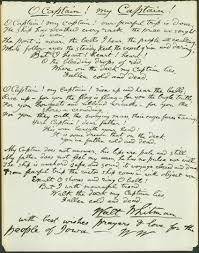 O Captain! my Captain!
O Captain! my Captain! our fearful trip is done,
The ship has weather'd every rack, the prize we sought
is won,
The port is near, the bells I hear, the people all exulting,
While follow eyes the steady keel, the vessel grim and daring;
But O heart! heart! heart!
O the bleeding drops of red
Where on the deck my Captain lies
Fallen cold and dead.
O Captain! my Captain! rise up and hear the bells;
Rise up for you the flag is flung for you the bugle trills
For you bouquets and ribbon'd wreaths for you the
shores
For you they call, the swaying mass, their eager faces turning
Here Captain! dear father!
This arm beneath your head!
It is some dream that on the deck
You've fallen cold and dead.
My Captain does not answer, his lips are pale and still
My father does not feel my arm, he has no pulse
The ship is anchor'd safe and sound, its voyage closed and done
From fearful trip the victor ship comes in with object won
Exult O shores and ring O bells!
But I with mournful tread
Walk the deck my Captain lies
Fallen cold and dead.
Walt Whitman
with best wishes prayers & love for the
people of Iowa